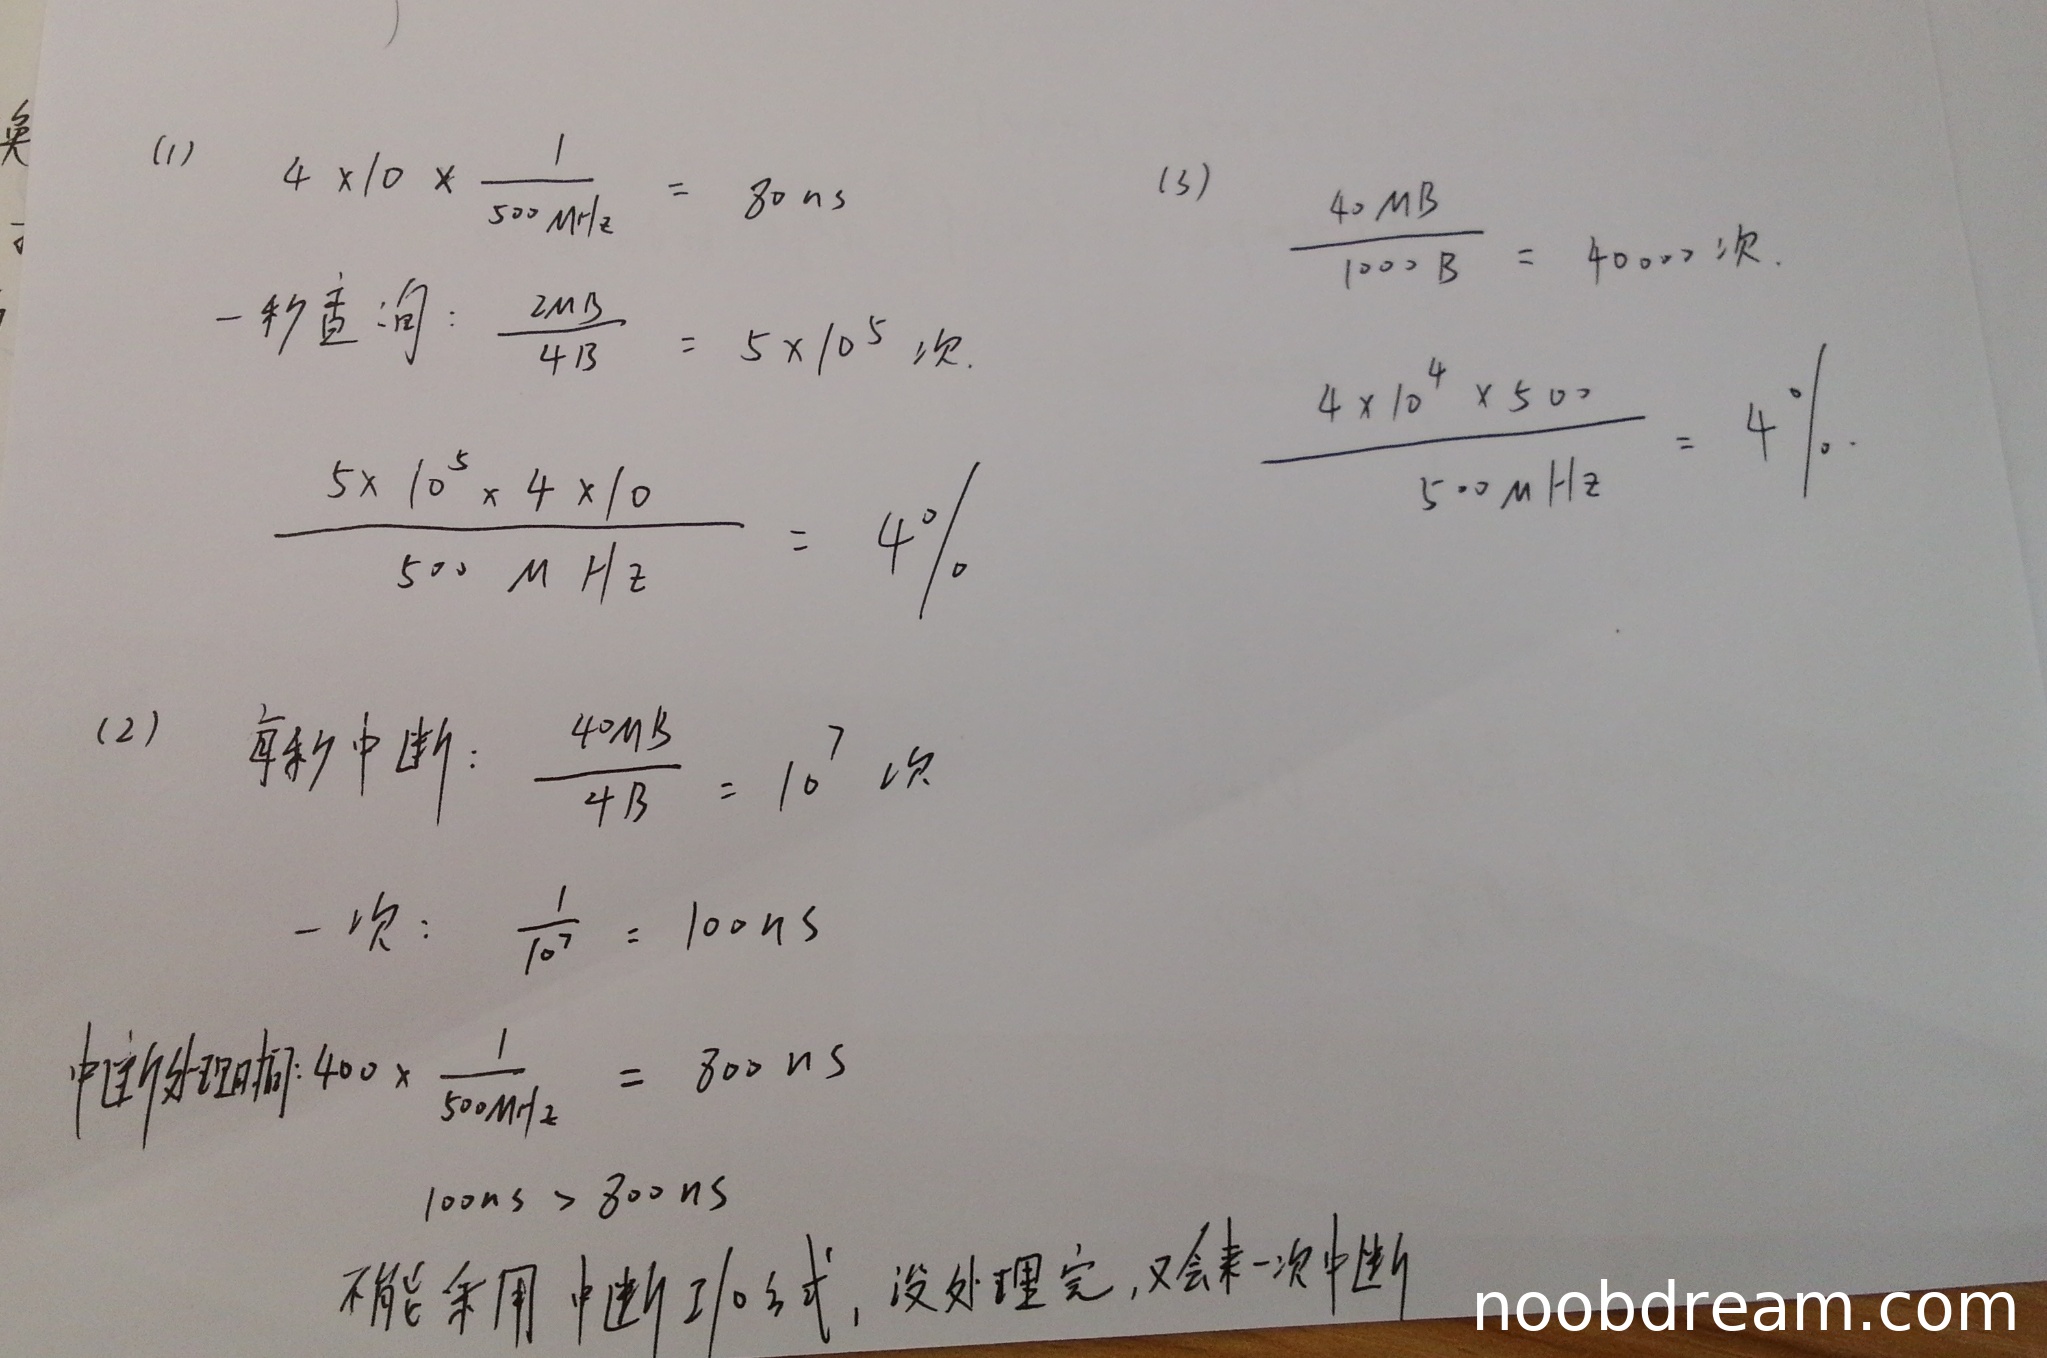 (1) 4 × 10 × 1/500MHz = 80ns
一秒查询: 2MB/4B = 5×10^5 次.
5×10^5 × 4 × 10 / 500 MHz = 4%
(2) 每秒中断: 40MB/4B = 10^7 次
一次: 1/10^7 = 100ns
中断处理时间: 400 × 1/500MHz = 800 ns
100ns > 800ns
不能采用中断I/O方式, 没处理完, 又会来一次中断
(3) 40MB/1000B = 40000次.
4×10^4 × 500 / 500MHz = 4%.
noobdream.com